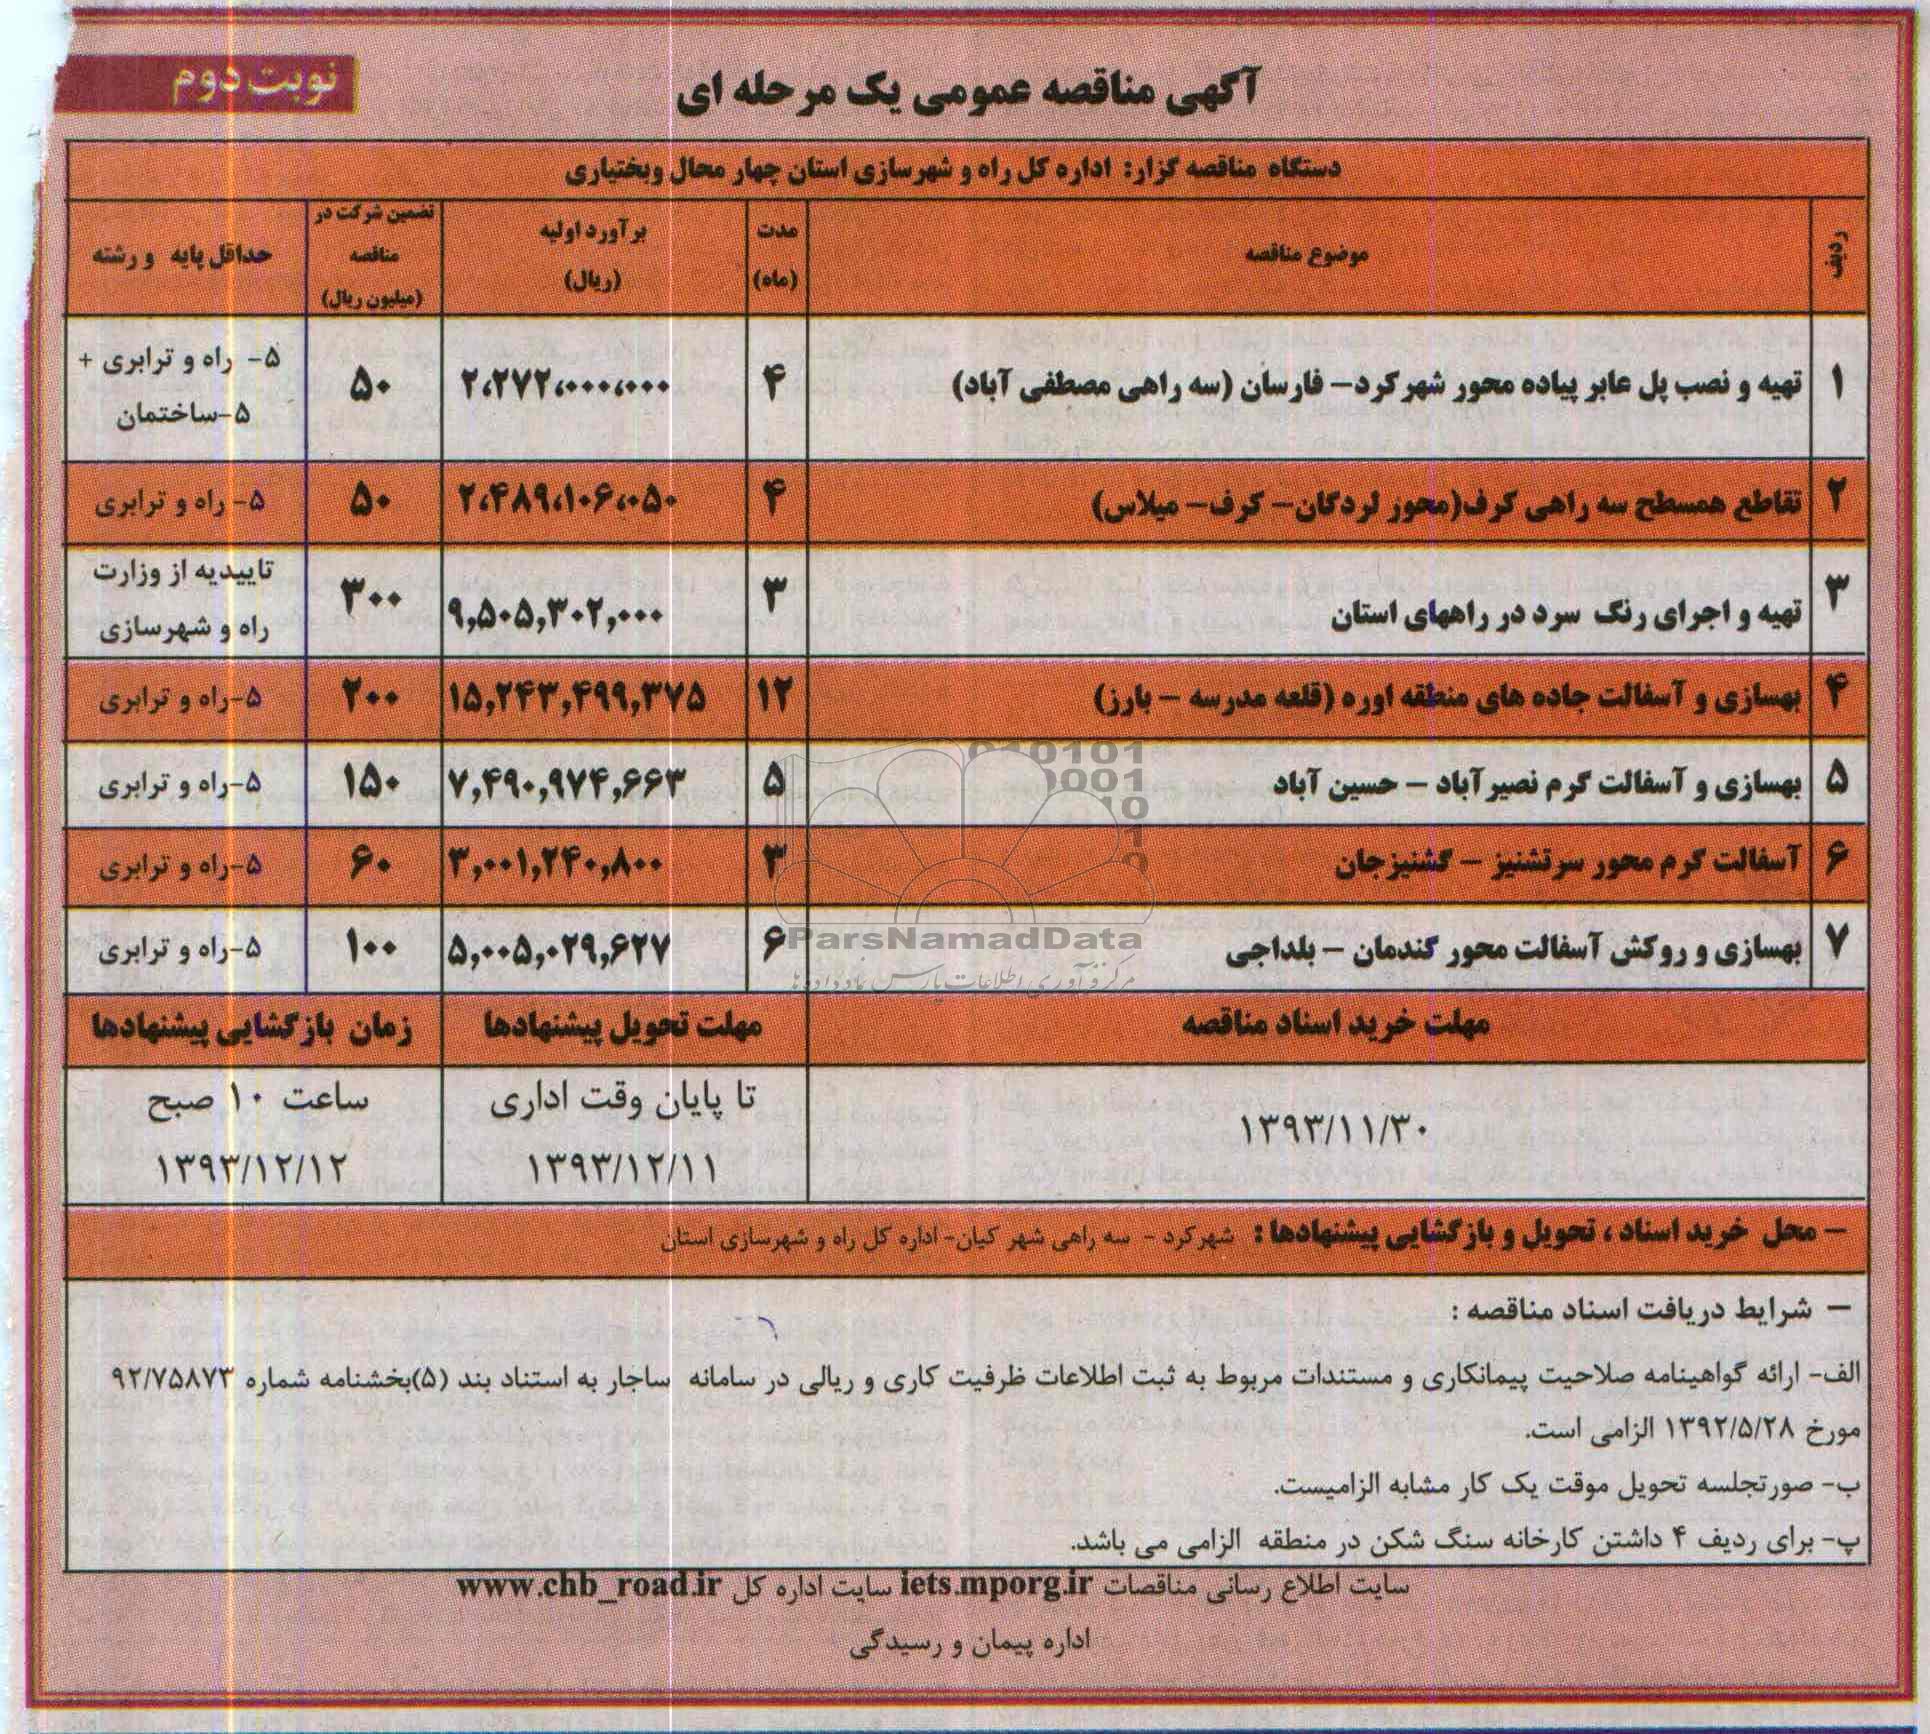 نوبت دوم
آگهی مناقصه عمومی یک مرحله ای
دستگاه مناقصه گزار: اداره کل راه و شهرسازی استان چهار محال وبختیاری
ردیف
موضوع مناقصه
مدت
(ماه)
برآورد اولیه
(ریال)
تضمین شرکت در
مناقصه
(میلیون ریال)
حداقل پایه و رشته
۱
تهیه و نصب پل عابر پیاده محور شهرکرد– فارسان (سه راهی مصطفی آباد)
۴
۲،۲۷۲،۰۰۰،۰۰۰
۵۰
۵- راه و ترابری +
۵-ساختمان
۲
تقاطع همسطح سه راهی کرف(محور لردگان– کرف– میلاس)
۴
۲،۴۸۹،۱۰۶،۰۵۰
۵۰
۵- راه و ترابری
۳
تهیه و اجرای رنگ سرد در راههای استان
۳
۹,۵۰۵,۳۰۲,۰۰۰
۳۰۰
تاییدیه از وزارت
راه و شهرسازی
۴
بهسازی و آسفالت جاده های منطقه اوره (قلعه مدرسه – بارز)
۱۲
۱۵,۲۴۳,۴۹۹,۳۷۵
۲۰۰
۵-راه و ترابری
۵
بهسازی و آسفالت گرم نصیرآباد – حسین آباد
۵
۷,۴۹۰,۹۷۴,۶۶۳
۱۵۰
۵-راه و ترابری
۶
آسفالت گرم محور سرتشنیز – گشنیزجان
۳
۳,۰۰۱,۲۴۰,۸۰۰
۶۰
۵-راه و ترابری
۷
بهسازی و روکش آسفالت محور گندمان – بلداجی
۶
۵,۰۰۵,۰۲۹,۶۲۷
۱۰۰
۵-راه و ترابری
ParsNamadData
مرکز فرآوری اطلاعات پارس نماد داده ها
مهلت خرید اسناد مناقصه
مهلت تحویل پیشنهادها
زمان بازگشایی پیشنهادها
۱۳۹۳/۱۱/۳۰
تا پایان وقت اداری
۱۳۹۳/۱۲/۱۱
ساعت ۱۰ صبح
۱۳۹۳/۱۲/۱۲
– محل خرید اسناد ، تحویل و بازگشایی پیشنهادها : شهرکرد - سه راهی شهر کیان- اداره کل راه و شهرسازی استان
– شرایط دریافت اسناد مناقصه :
الف- ارائه گواهینامه صلاحیت پیمانکاری و مستندات مربوط به ثبت اطلاعات ظرفیت کاری و ریالی در سامانه ساجار به استناد بند (۵)بخشنامه شماره ۹۲/۷۵۸۷۳
مورخ ۱۳۹۲/۵/۲۸ الزامی است.
ب- صورتجلسه تحویل موقت یک کار مشابه الزامیست.
پ- برای ردیف ۴ داشتن کارخانه سنگ شکن در منطقه الزامی می باشد.
سایت اطلاع رسانی مناقصات iets.mporg.ir سایت اداره کل www.chb_road.ir
اداره پیمان و رسیدگی